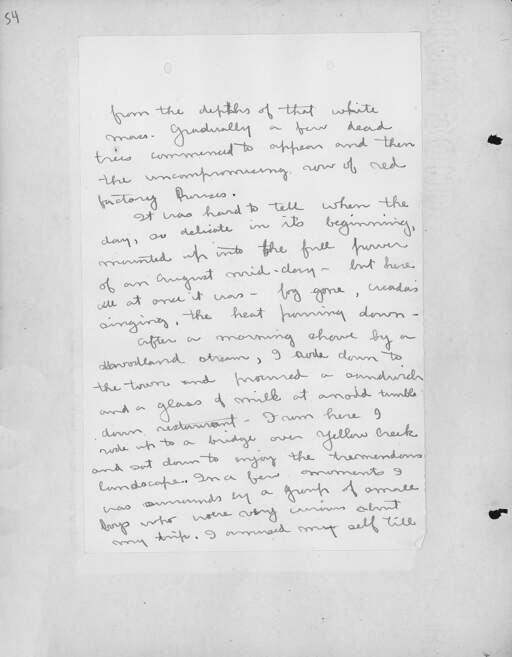 54
from the depths of that white
mass. Gradually a few dead
trees commenced to appear and then
the uncompromising row of red
factory houses.
It was hard to tell when the
day, so delicate in it's beginning,
mounted up into the full power
of an August mid-day - but here
all at once it was - fog gone, cicadas
singing, the heat pouring down -
After a morning shave by a
woodland stream, I rode down to
the town and procured a sandwich
and a glass of milk at an odd tumble
down restaurant - From here I
rode up to a bridge over Yellow Creek
and sat down to enjoy the tremendous
landscape. In a few moments I
was surrounds by a group of small
boys who were very curious about
my trip. I amused my self till